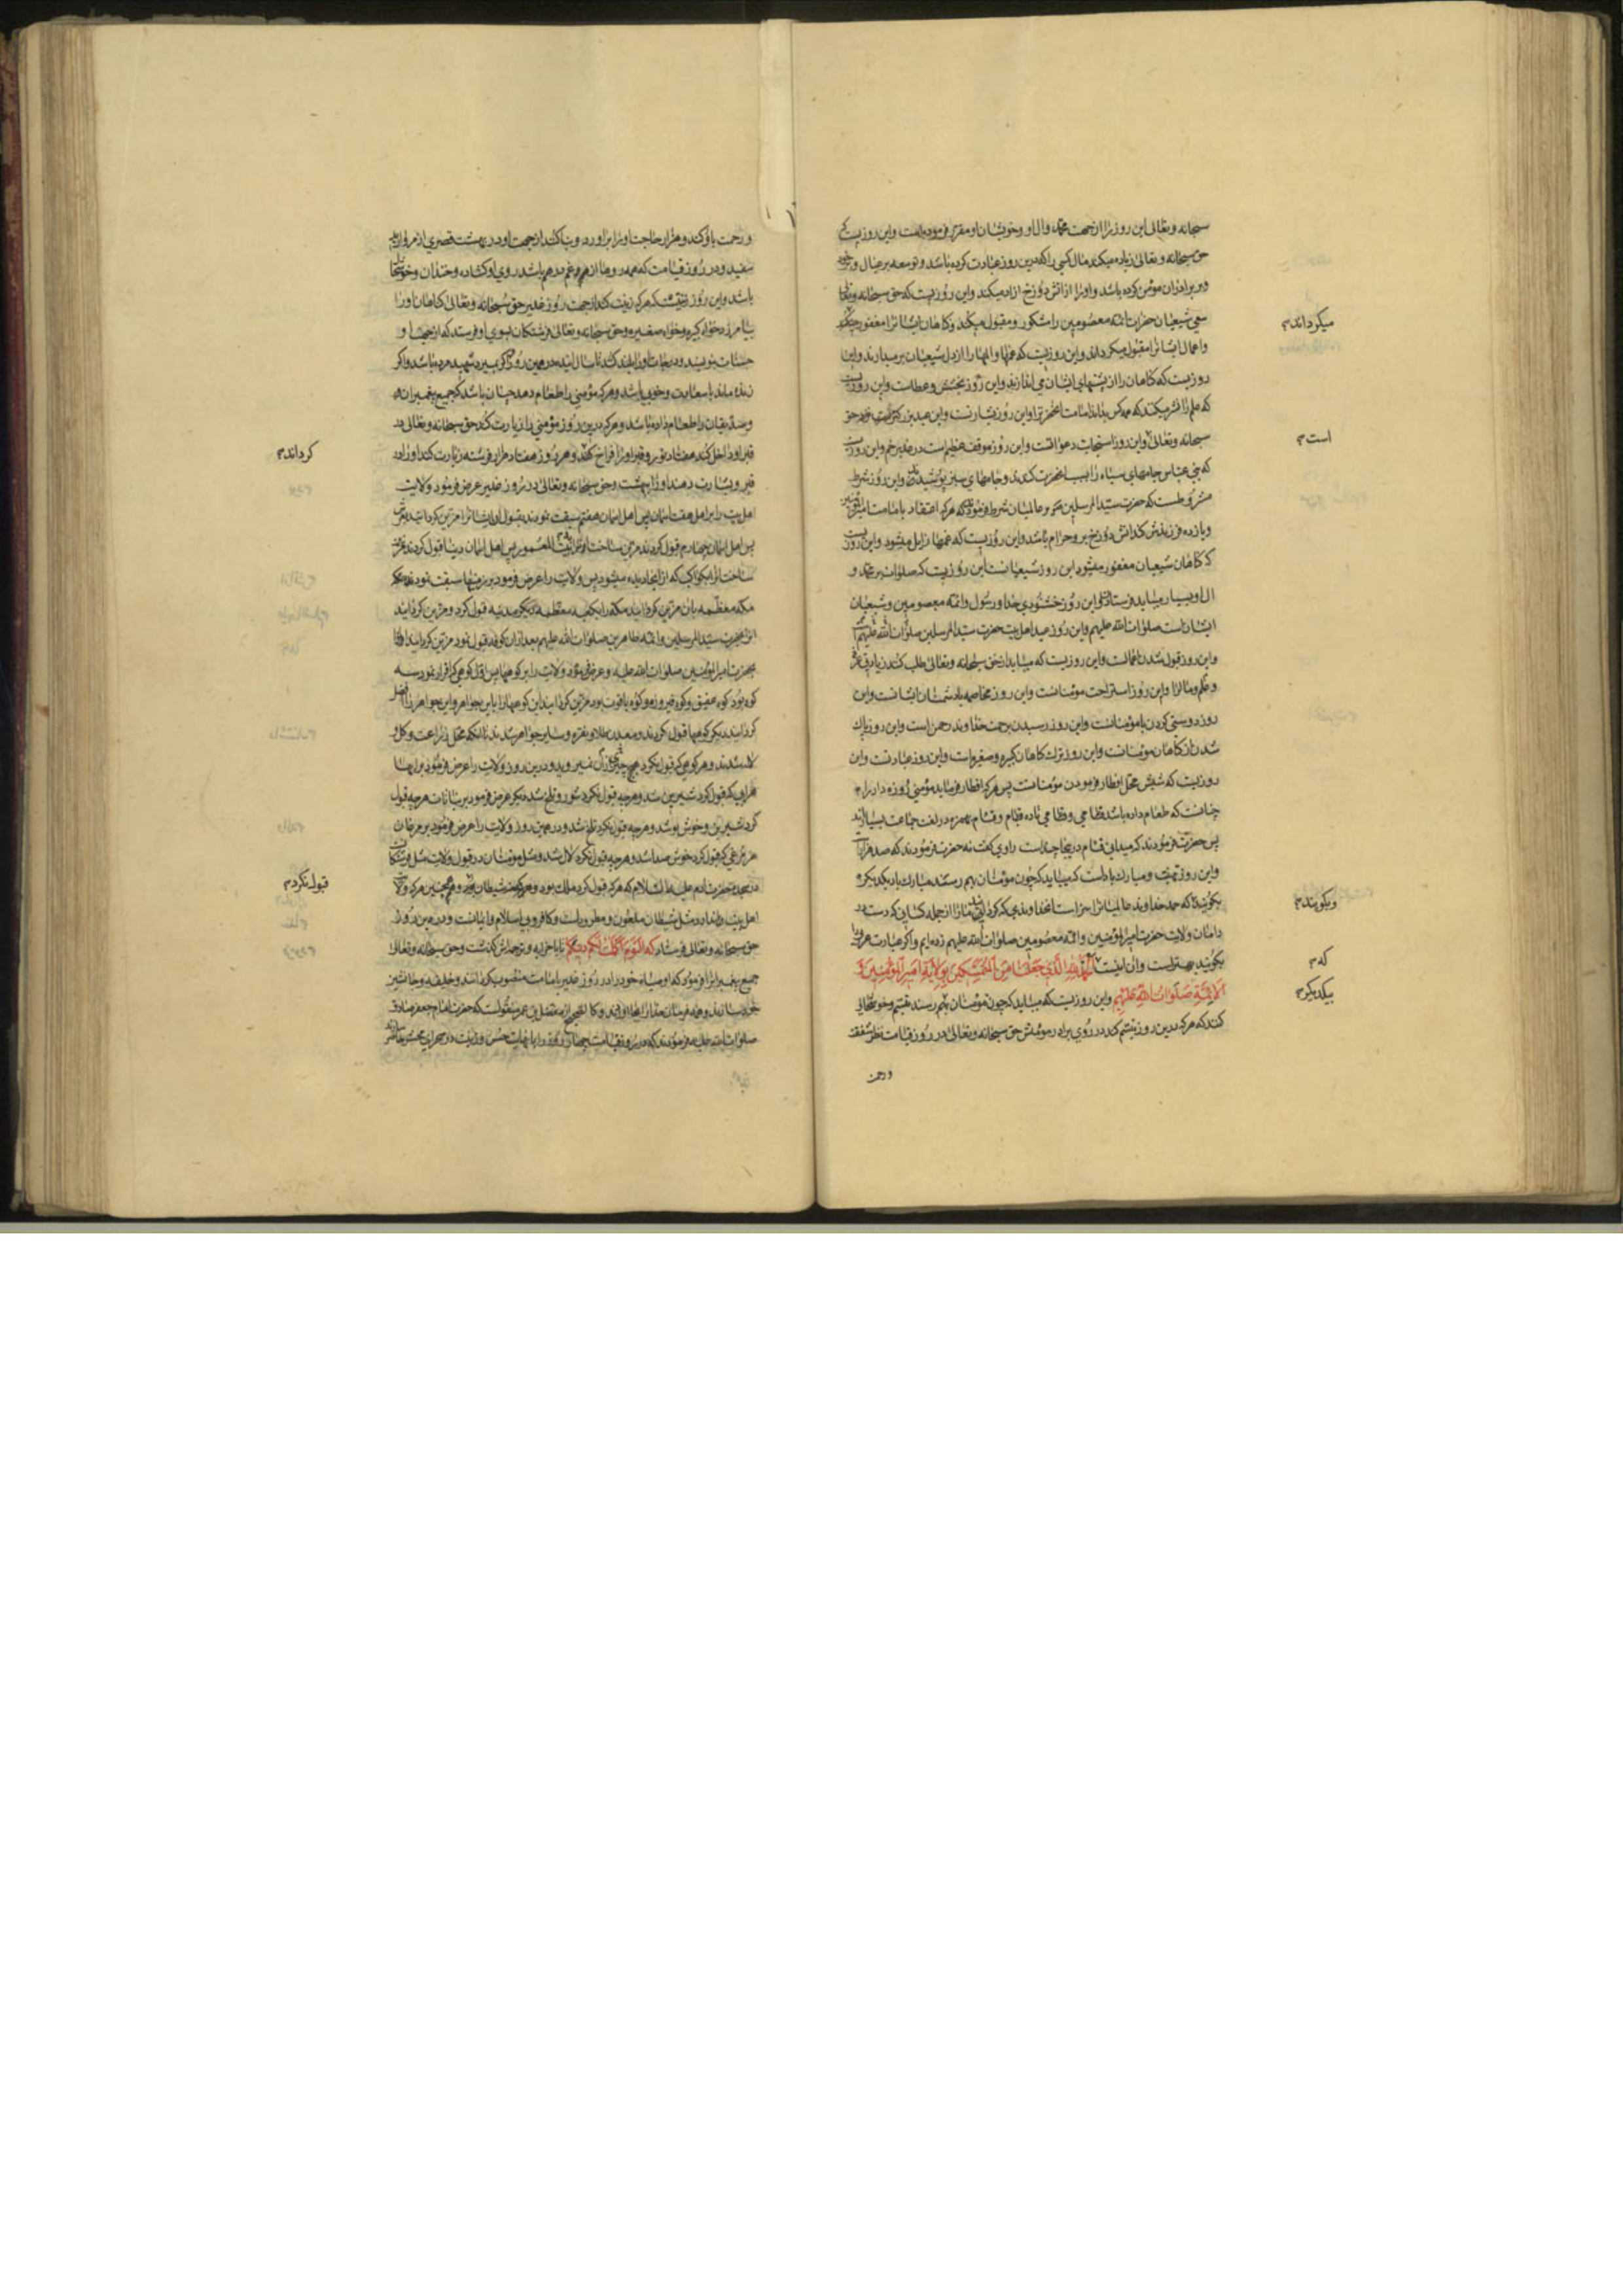 سبحانه وتعالی این روز را از جهت محمد وال او وخویشان او مقرر فرموده است واین روزیست که
حق سبحانه وتعالی زیاده میکند مال کسی را که درین روز عبادت کرده باشد وتوسعه بر عیال وخود
وبر برادران مؤمن کرده باشد واورا از اتش دوزخ ازاد میکند واین روزیست که حق سبحانه وتعالی
سعی شیعیان حضرات ائمه معصومین را مشکور ومقبول میکند وکاهان ایشانرا مغفور
میکرداند
واعمال ایشانرا مقبول میکرداند واین روزیست که غمها والمها را از دل شیعیان بر میدارند واین
روزیست که کاهان را از پشتهای ایشان می اندازند واین روز بخشش وعطاست واین روزیست
که علم را نشر میکند که همه کس بداند امامت انحضرترا واین روز بشارتست واین عید بزرکتر
سبحانه وتعالی واین روز استجابت دعواتست واین روز موقف عظیم است در غدیر خم واین روزیست
است
که بنی عباس جامهای سیاه را بسبب انحضرت کندند وجامهای سبز پوشیدند واین روز شرط
مشروطست که حضرت سید المرسلین بر عالمیان شرط فرمودند که هرکه اعتقاد بامامت امیرالمؤمنین
ویازده فرزندش کند اتش دوزخ بر او حرام باشد واین روزیست که غمها زایل میشود واین روزیست
که کاهان شیعیان مغفور میشود این روز شیعیانست این روزیست که صلوات بر محمد و
ال او بسیار میباید فرستاد واین روز خشنودی خدا ورسول وائمه معصومین وشیعیان
ایشانست صلوات الله علیهم واین روز عید اهل بیت حضرت سید المرسلین صلوات الله علیهم است
واین روز قبول شدن اعمالست واین روزیست که میباید از حق سبحانه وتعالی طلب کنند زیادتی
وعلم ومالرا واین روز استراحت مؤمنانست واین روز مخاصمه بادشمنان ایشانست واین
روز دوستی کردن بامؤمنانست واین روز رسیدن برحمت خداوند رحمن است واین روز پاک
شدن از کاهان مؤمنانست واین روز ترک کاهان کبیره وصغیره است واین روز عبادتست واین
روزیست که شبش محل افطار فرمودن مؤمنانست پس هرکه افطار فرماید مؤمنی روزه دار را
چنانست که طعام داده باشد فئامی وفئامی تا ده فئام وفئام بهمزه در لغت جماعت بسیارند
پس حضرت فرمودند که میدانی فئام در اینجا چنداست راوی کفت نه حضرت فرمودند که صد هزارست
واین روز تهنیت ومبارک باد است که میباید که چون مؤمنان بهم رسند مبارک باد بیکدیکر
بکویند که حمد خداوند عالمیانرا سزاست انخداوندی که کردانید مارا از جمله کسانی که دست در
وبکویند
دامان ولایت حضرت امیرالمؤمنین وائمه معصومین صلوات الله علیهم زده ایم واکر عبارت عربیرا
بکویند بهتر است وان اینست الحمد لله الذی جعلنا من المتمسکین بولایة امیر المؤمنین و
که
الائمة صلوات الله علیهم واین روزیست که میباید که چون مؤمنان بهم رسند تبسم وخوشحالی
بیکدیکر
کنند که هرکه درین روز تبسم کند در روی برادر مؤمنش حق سبحانه وتعالی در روز قیامت نظر شفقت
ورحمت
ورحمت باو کند وهزار حاجت اورا براورد وبنا کند از جهت او در بهشت قصری از مروارید
سفید ودر روز قیامت که همه روها از هم وغم درهم باشد روی او کشاده وخندان وخوشحال
باشد واین روز زینتست که هرکه زینت کند از جهت روز غدیر حق سبحانه وتعالی کاهان اورا
بیامرزد خواه کبیره وخواه صغیره وحق سبحانه وتعالی فرشتکان بسوی او فرستد که از جهت او
حسنات نویسند ودرجات اورا بلند کنند تا سال اینده در همین روز واکر بمیرد شهید مرده باشد واکر
زنده ماند باسعادت وخوبی باشد وهرکه مؤمنی را طعام دهد چنان باشد که جمیع پیغمبرانه
وصدیقان را طعام داده باشد وهرکه درین روز مؤمنی را زیارت کند حق سبحانه وتعالی در
قبر او داخل کند هفتاد نور وقبر اورا فراخ کند وهر روز هفتاد هزار فرشته زیارت کند اورا در
کرداند
قبر وبشارت دهند اورا ببهشت وحق سبحانه وتعالی در روز غدیر عرض فرمود ولایت
اهل بیت را بر اهل هفت اسمان پس اهل اسمان هفتم سبقت نمودند بقبول
پس اهل اسمان چهارم قبول کردند مزین ساخت اورا به بیت المعمور پس اهل اسمان دنیا قبول کردند مزین
ساخت انرا بکواکب پس ولایت را عرض فرمود بر زمینها سبقت نمود
مکه معظمه بان مزین کردانید مکه را بکعبه معظمه دیکر مدینه قبول کرد ومزین کردانید
انرا بحضرت سید المرسلین وائمه طاهرین صلوات الله علیهم بعد از ان کوفه قبول نمود مزین کردانید اورا
بحضرت امیر المؤمنین صلوات الله علیه وعرض فرمود ولایت را بر کوهها پس اول کوهی که اقرار نمود سه
کوه بود کوه عقیق وکوه فیروزه وکوه یاقوت بود مزین کردانید این کوهها را باین جواهر واین جواهر را افضل
کردانید دیکر کوهها قبول کردند ومعدن طلا ونقره وسایر جواهر شدند
شدند وهر کوهی که قبول نکرد هیچ چیزی از ان نمیروید ودرین روز ولایت را عرض فرمود بر ابها
هر ابی که قبول کرد شیرین شد وهرچه قبول نکرد شور وتلخ شد دیکر عرض فرمود بر نباتات هرچه قبول
کرد شیرین وخوش بو شد وهرچه قبول نکرد تلخ شد ودر همین روز ولایت را عرض فرمود بر مرغان
هر مرغی که قبول کرد خوش صدا شد وهرچه قبول نکرد لال شد ومثل مؤمنان در قبول ولایت مثل فرشتکان
در سجده حضرت ادم علیه السلام که هرکه قبول کرد ملک بود وهرکه شیطان بود وهمچنین هرکه ولایت
قبول نکرد
اهل بیت ندارد مثل شیطان ملعون ومطرود است وکافر وبی اسلام وایمانست ودر همین روز
حق سبحانه وتعالی فرستاد که الیوم اکملت لکم دینکم تا باخر ایه وترجمه اش کذشت وحق سبحانه وتعالی
جمیع پیغمبرانرا فرمود که اوصیاء خود را در روز غدیر بامامت منصوب کردانند وخلیفه وجانشین
صلوات الله علیه فرمودند که در روز قیامت